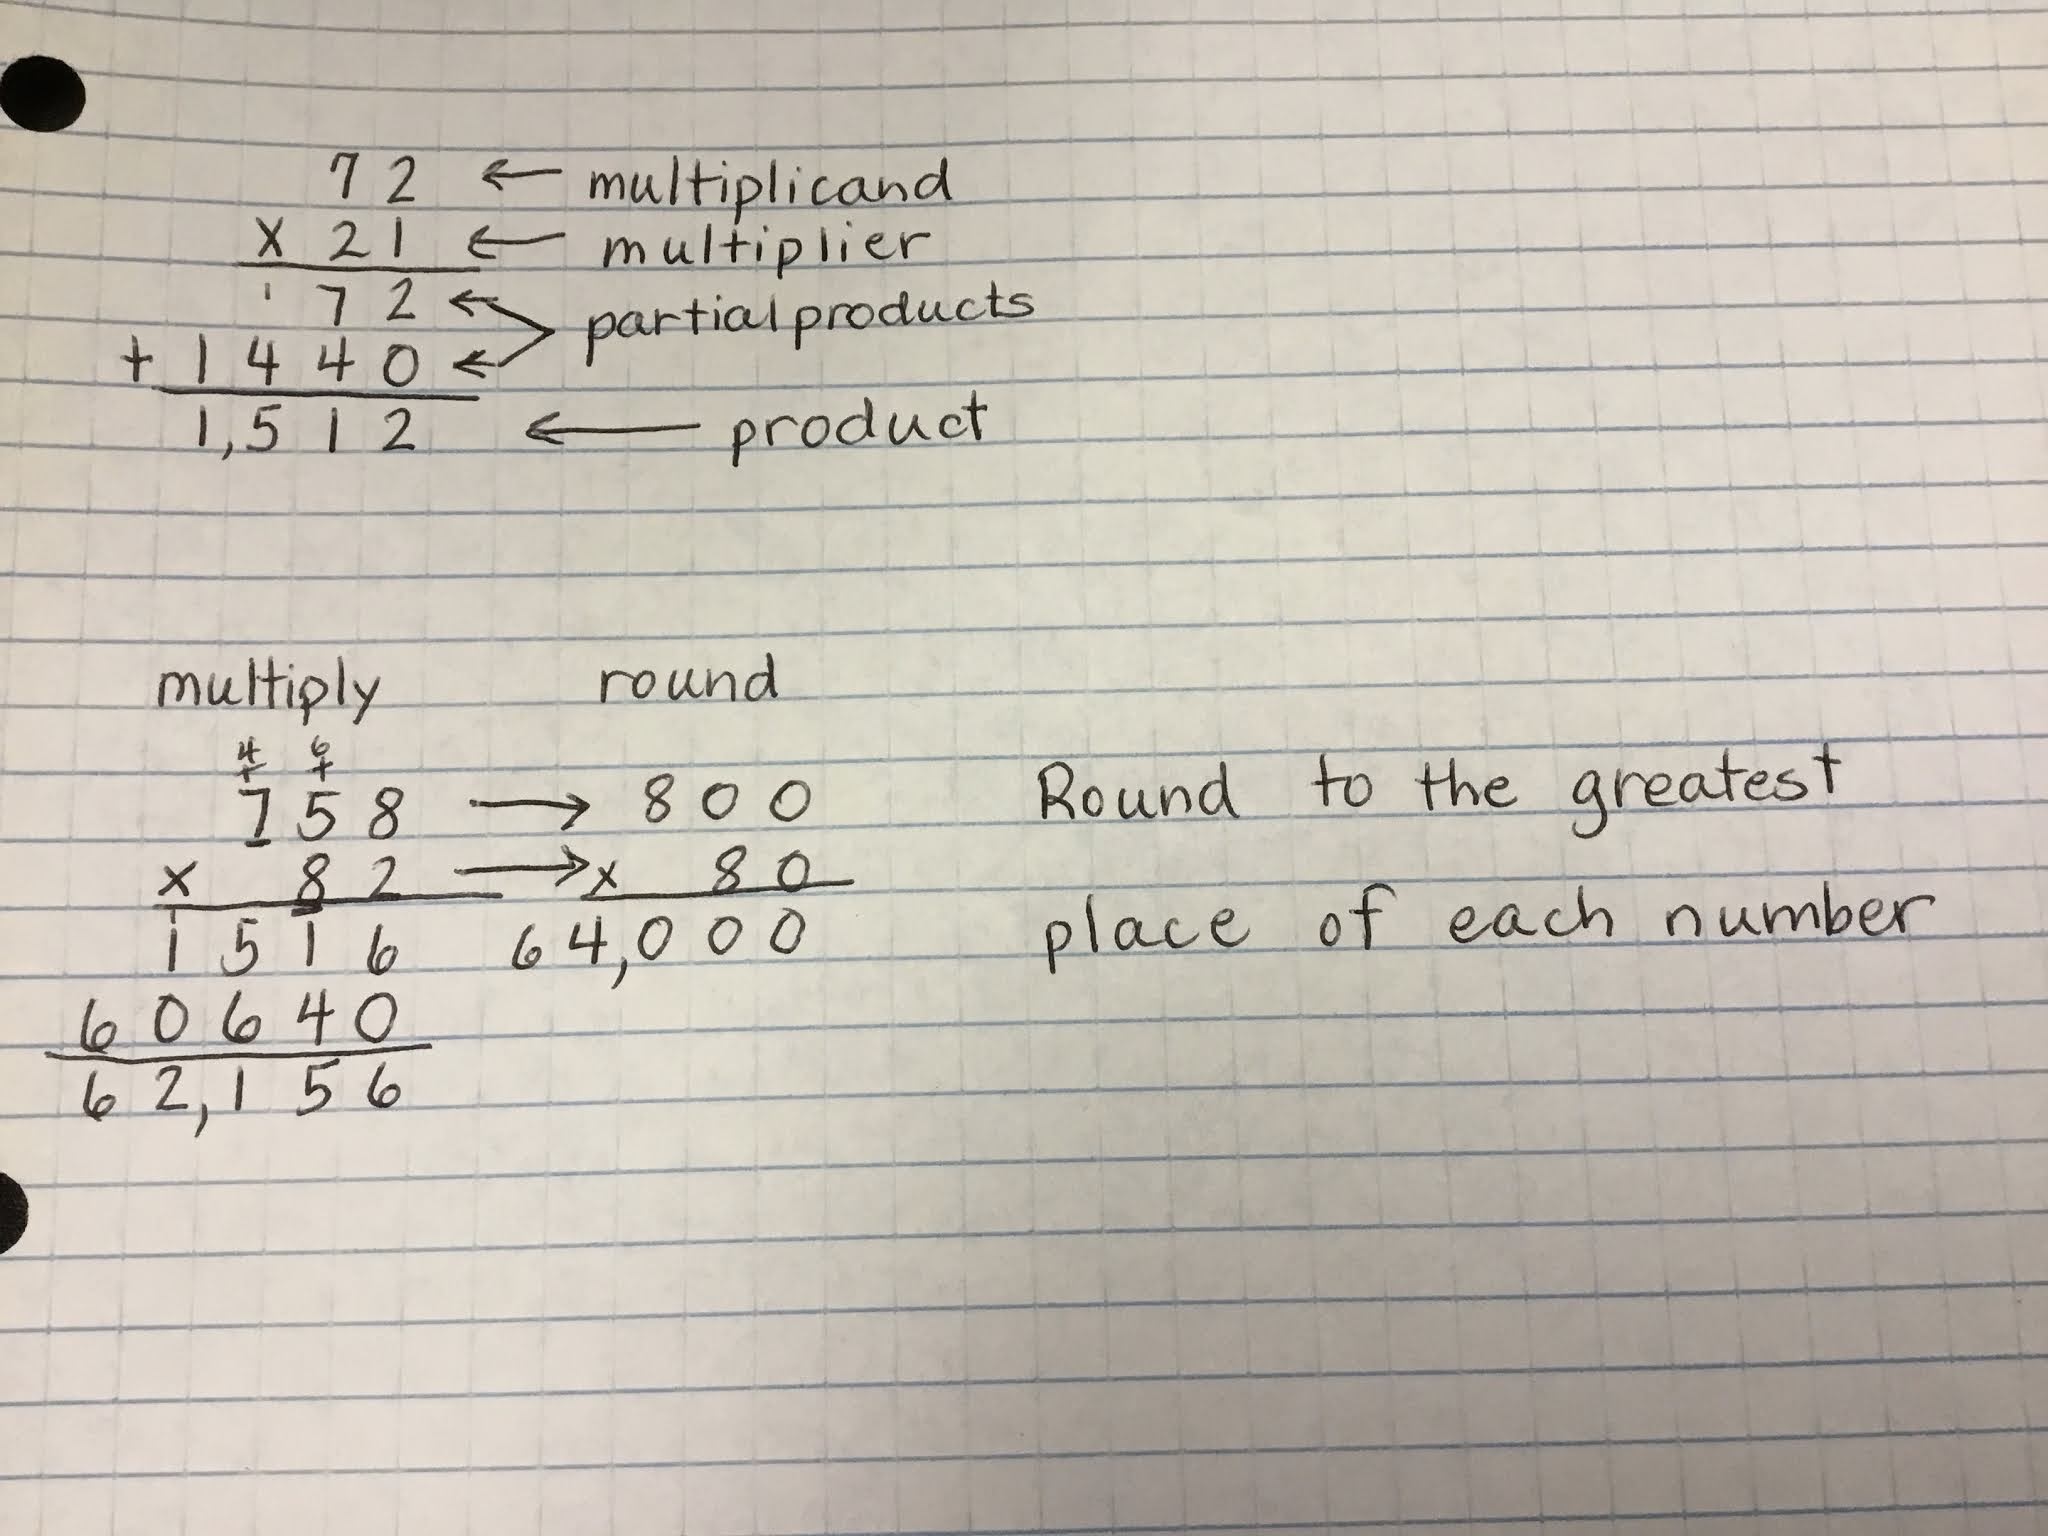 72 ← multiplicand
x 21 ← multiplier
1 72 ← partial products
+ 1440 ←
1,512 ← product
multiply round
4 6
1 1
758 → 800 Round to the greatest
x 82 → x 80
1516 64,000 place of each number
60640
62,156